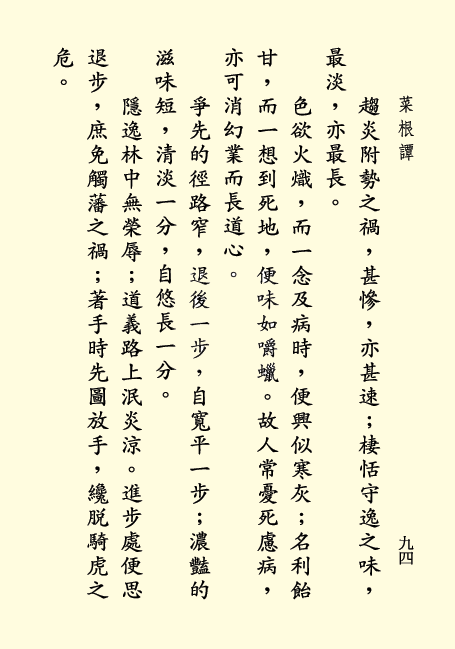 菜根譚
九四
趨炎附勢之禍，甚慘，亦甚速；棲恬守逸之味，
最淡，亦最長。
色欲火熾，而一念及病時，便興似寒灰；名利飴
甘，而一想到死地，便味如嚼蠟。故人常憂死慮病，
亦可消幻業而長道心。
爭先的徑路窄，退後一步，自寬平一步；濃豔的
滋味短，清淡一分，自悠長一分。
隱逸林中無榮辱；道義路上泯炎涼。進步處便思
退步，庶免觸藩之禍；著手時先圖放手，纔脫騎虎之
危。